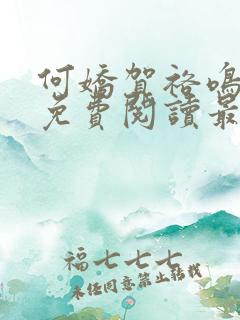 何嬌賀裕鳴
免費閱讀最
福七七七
未經同意禁止轉載